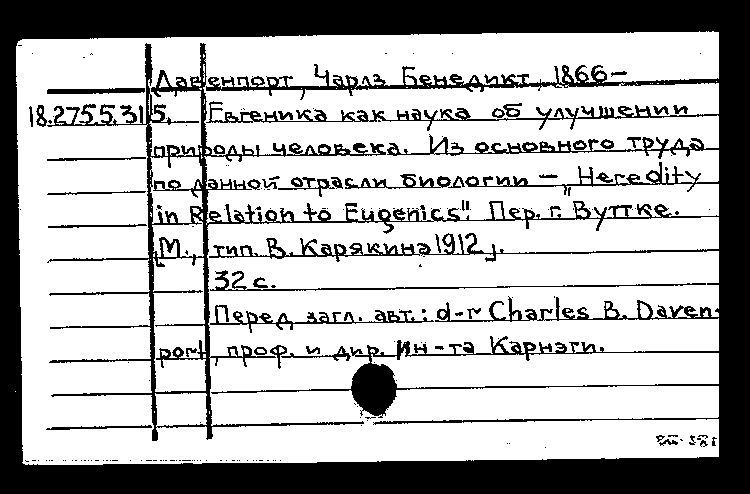 Давенпорт, Чарлз Бенедикт, 1866–
18.275.5.315. Евгеника как наука об улучшении
природы человека. Из основного труда
по данной отрасли биологии – „Heredity
in Relation to Eugenics". Пер. г. Вуттке.
[М., тип. В. Карякина 1912].
32 с.
Перед загл. авт.: d-r Charles B. Daven-
port, проф. и дир. Ин-та Карнэги.